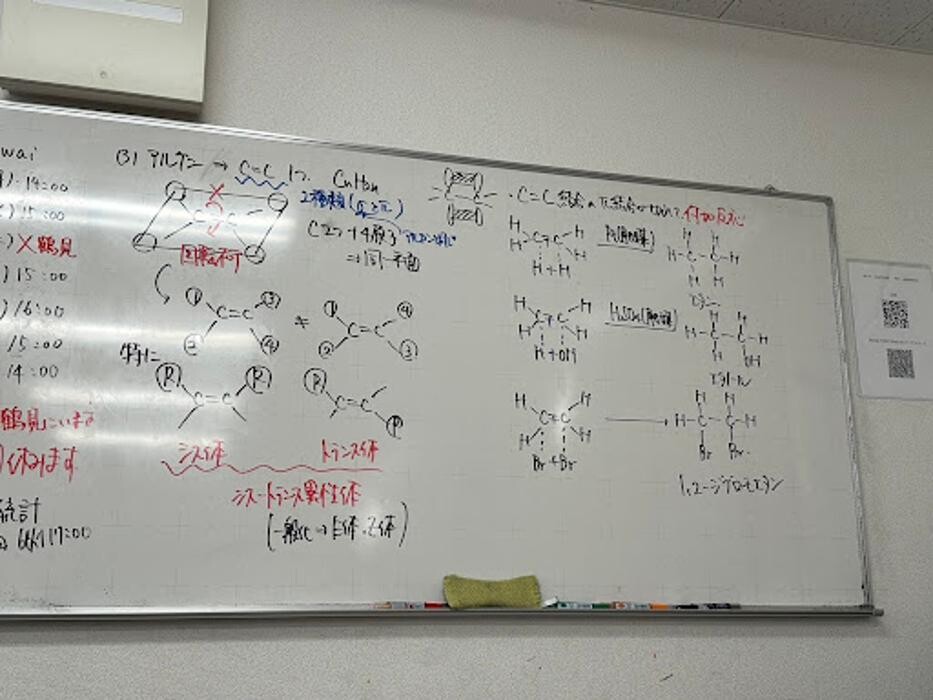 wai
14:00
15:00
X 鶴見
15:00
16:00
15:00
14:00
鶴見にいます
休みます
統計
17:00
(3) アルケン → C=C 1つ CnH2n
2種類(σとπ)
C2つ+4原子
⇒同一平面
回転不可
① ③
C=C
② ④
≠
① ④
C=C
② ③
特に
R R
C=C
R
C=C
R
シス体 トランス体
シス-トランス異性体
(一般化→E体・Z体)
・C=C結合のπ結合が切れて付加反応
H H
C=C
H H
H+H
H H
H-C-C-H
H H
エタン
H H
C=C
H H
H+OH
H H
H-C-C-H
H OH
H H
C=C
H H
Br+Br
H H
H-C-C-H
Br Br
1,2-ジブロモエタン